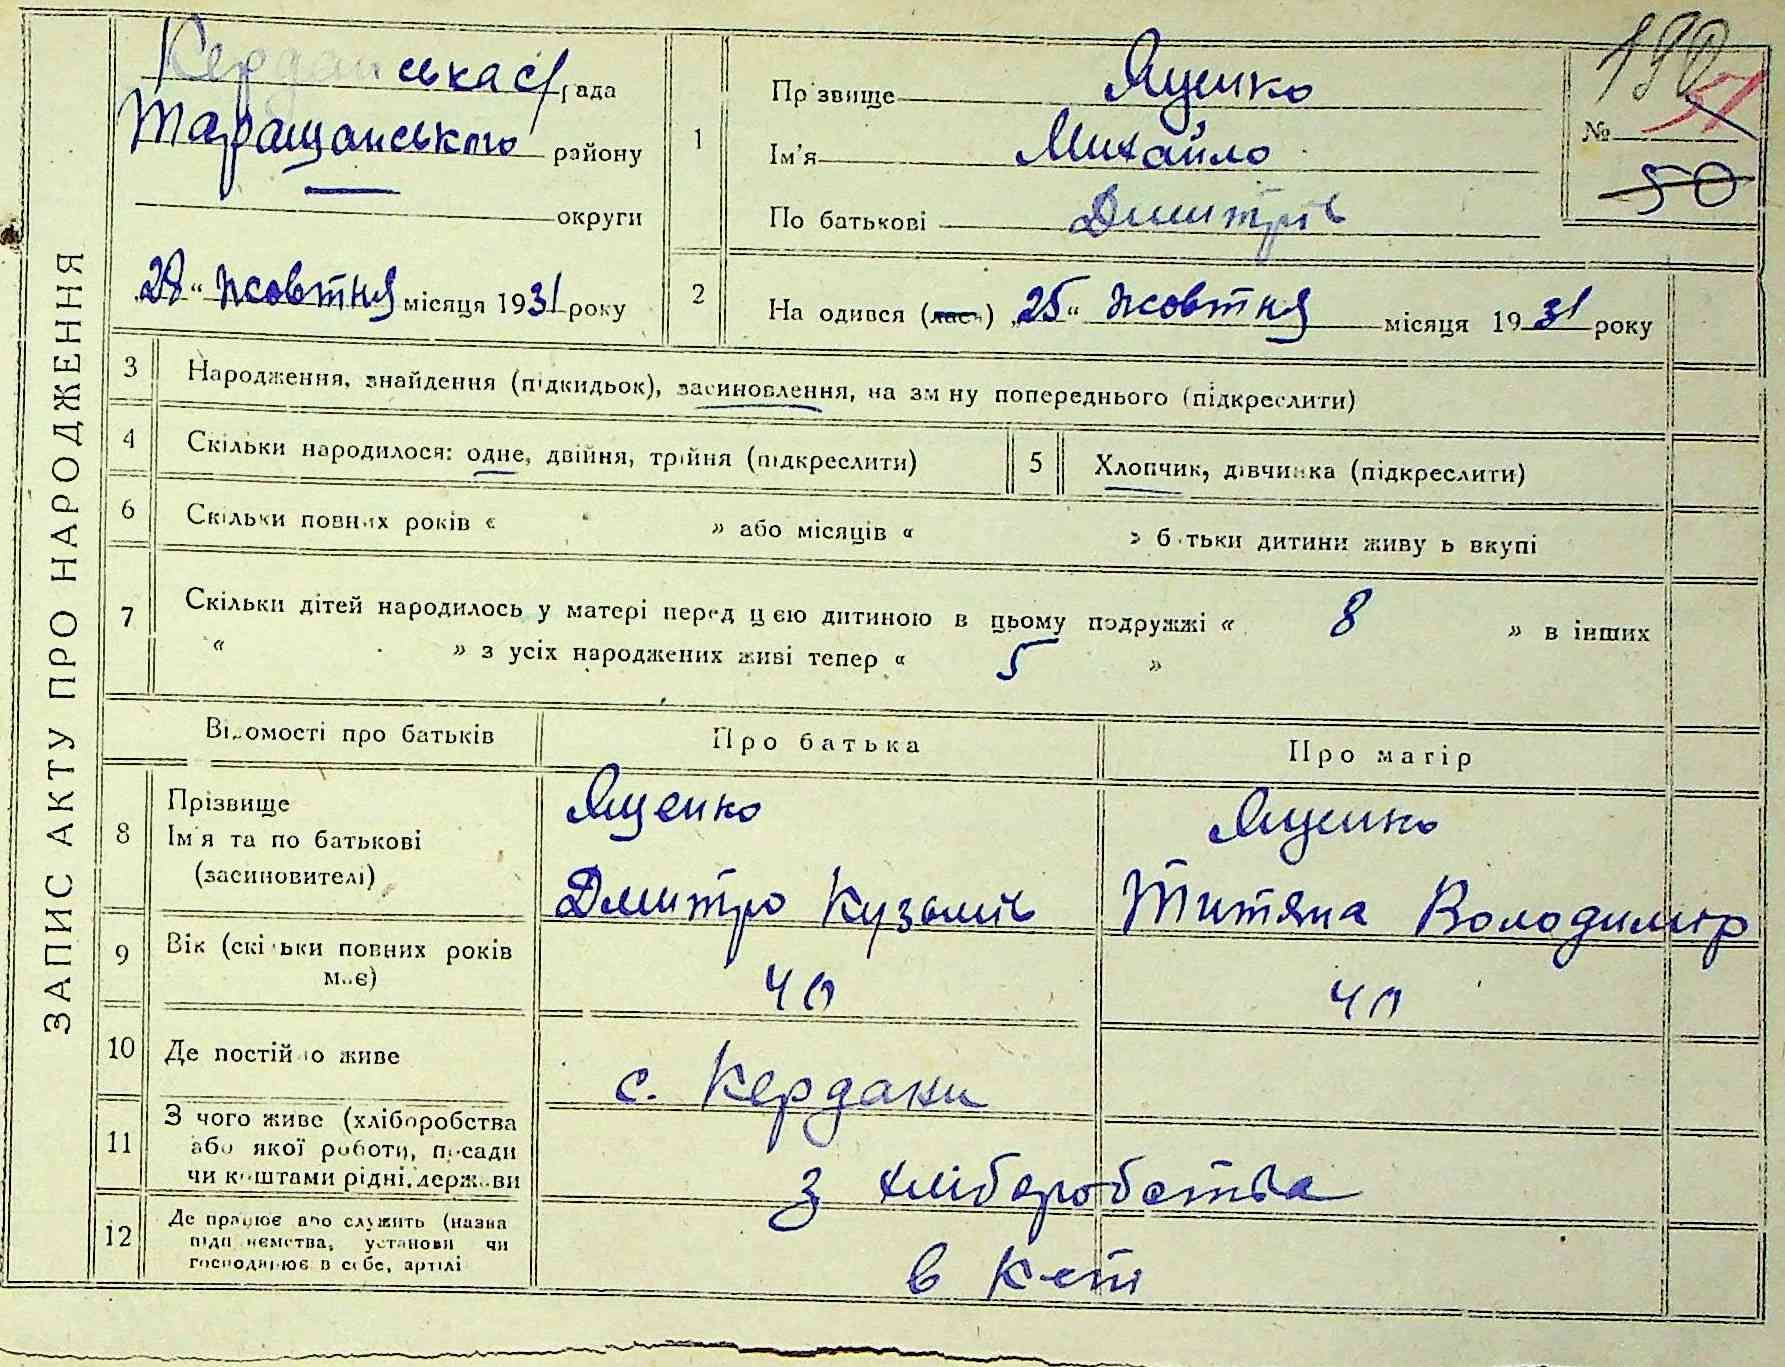 ЗАПИС АКТУ ПРО НАРОДЖЕННЯ
Керданська с/рада
Таращанського району
округи
„28“ жовтня місяця 1931 року
1
Прізвище Яценко
Ім'я Михайло
По батькові Дмитрів
190
№ 51
50
2
Народився (лась) „25“ жовтня місяця 1931 року
3 Народження, знайдення (підкидьок), засиновлення, на зміну попереднього (підкреслити)
4 Скільки народилося: одне, двійня, трійня (підкреслити)
5 Хлопчик, дівчинка (підкреслити)
6 Скільки повних років « » або місяців « » батьки дитини живуть вкупі
7 Скільки дітей народилось у матері перед цією дитиною в цьому подружжі « 8 » в інших
« » з усіх народжених живі тепер « 5 »
Відомості про батьків Про батька Про матір
8 Прізвище
Ім'я та по батькові
(засиновителі)
Яценко
Дмитро Кузьмів
Яценко
Титяна Володимір
9 Вік (скільки повних років
має)
40
40
10 Де постійно живе
с. Кердани
11 З чого живе (хліборобства
або якої роботи, посади
чи коштами рідні, держави
з хліборобства
12 Де працює або служить (назва
підприємства, установи чи
господарює в себе, артілі
в